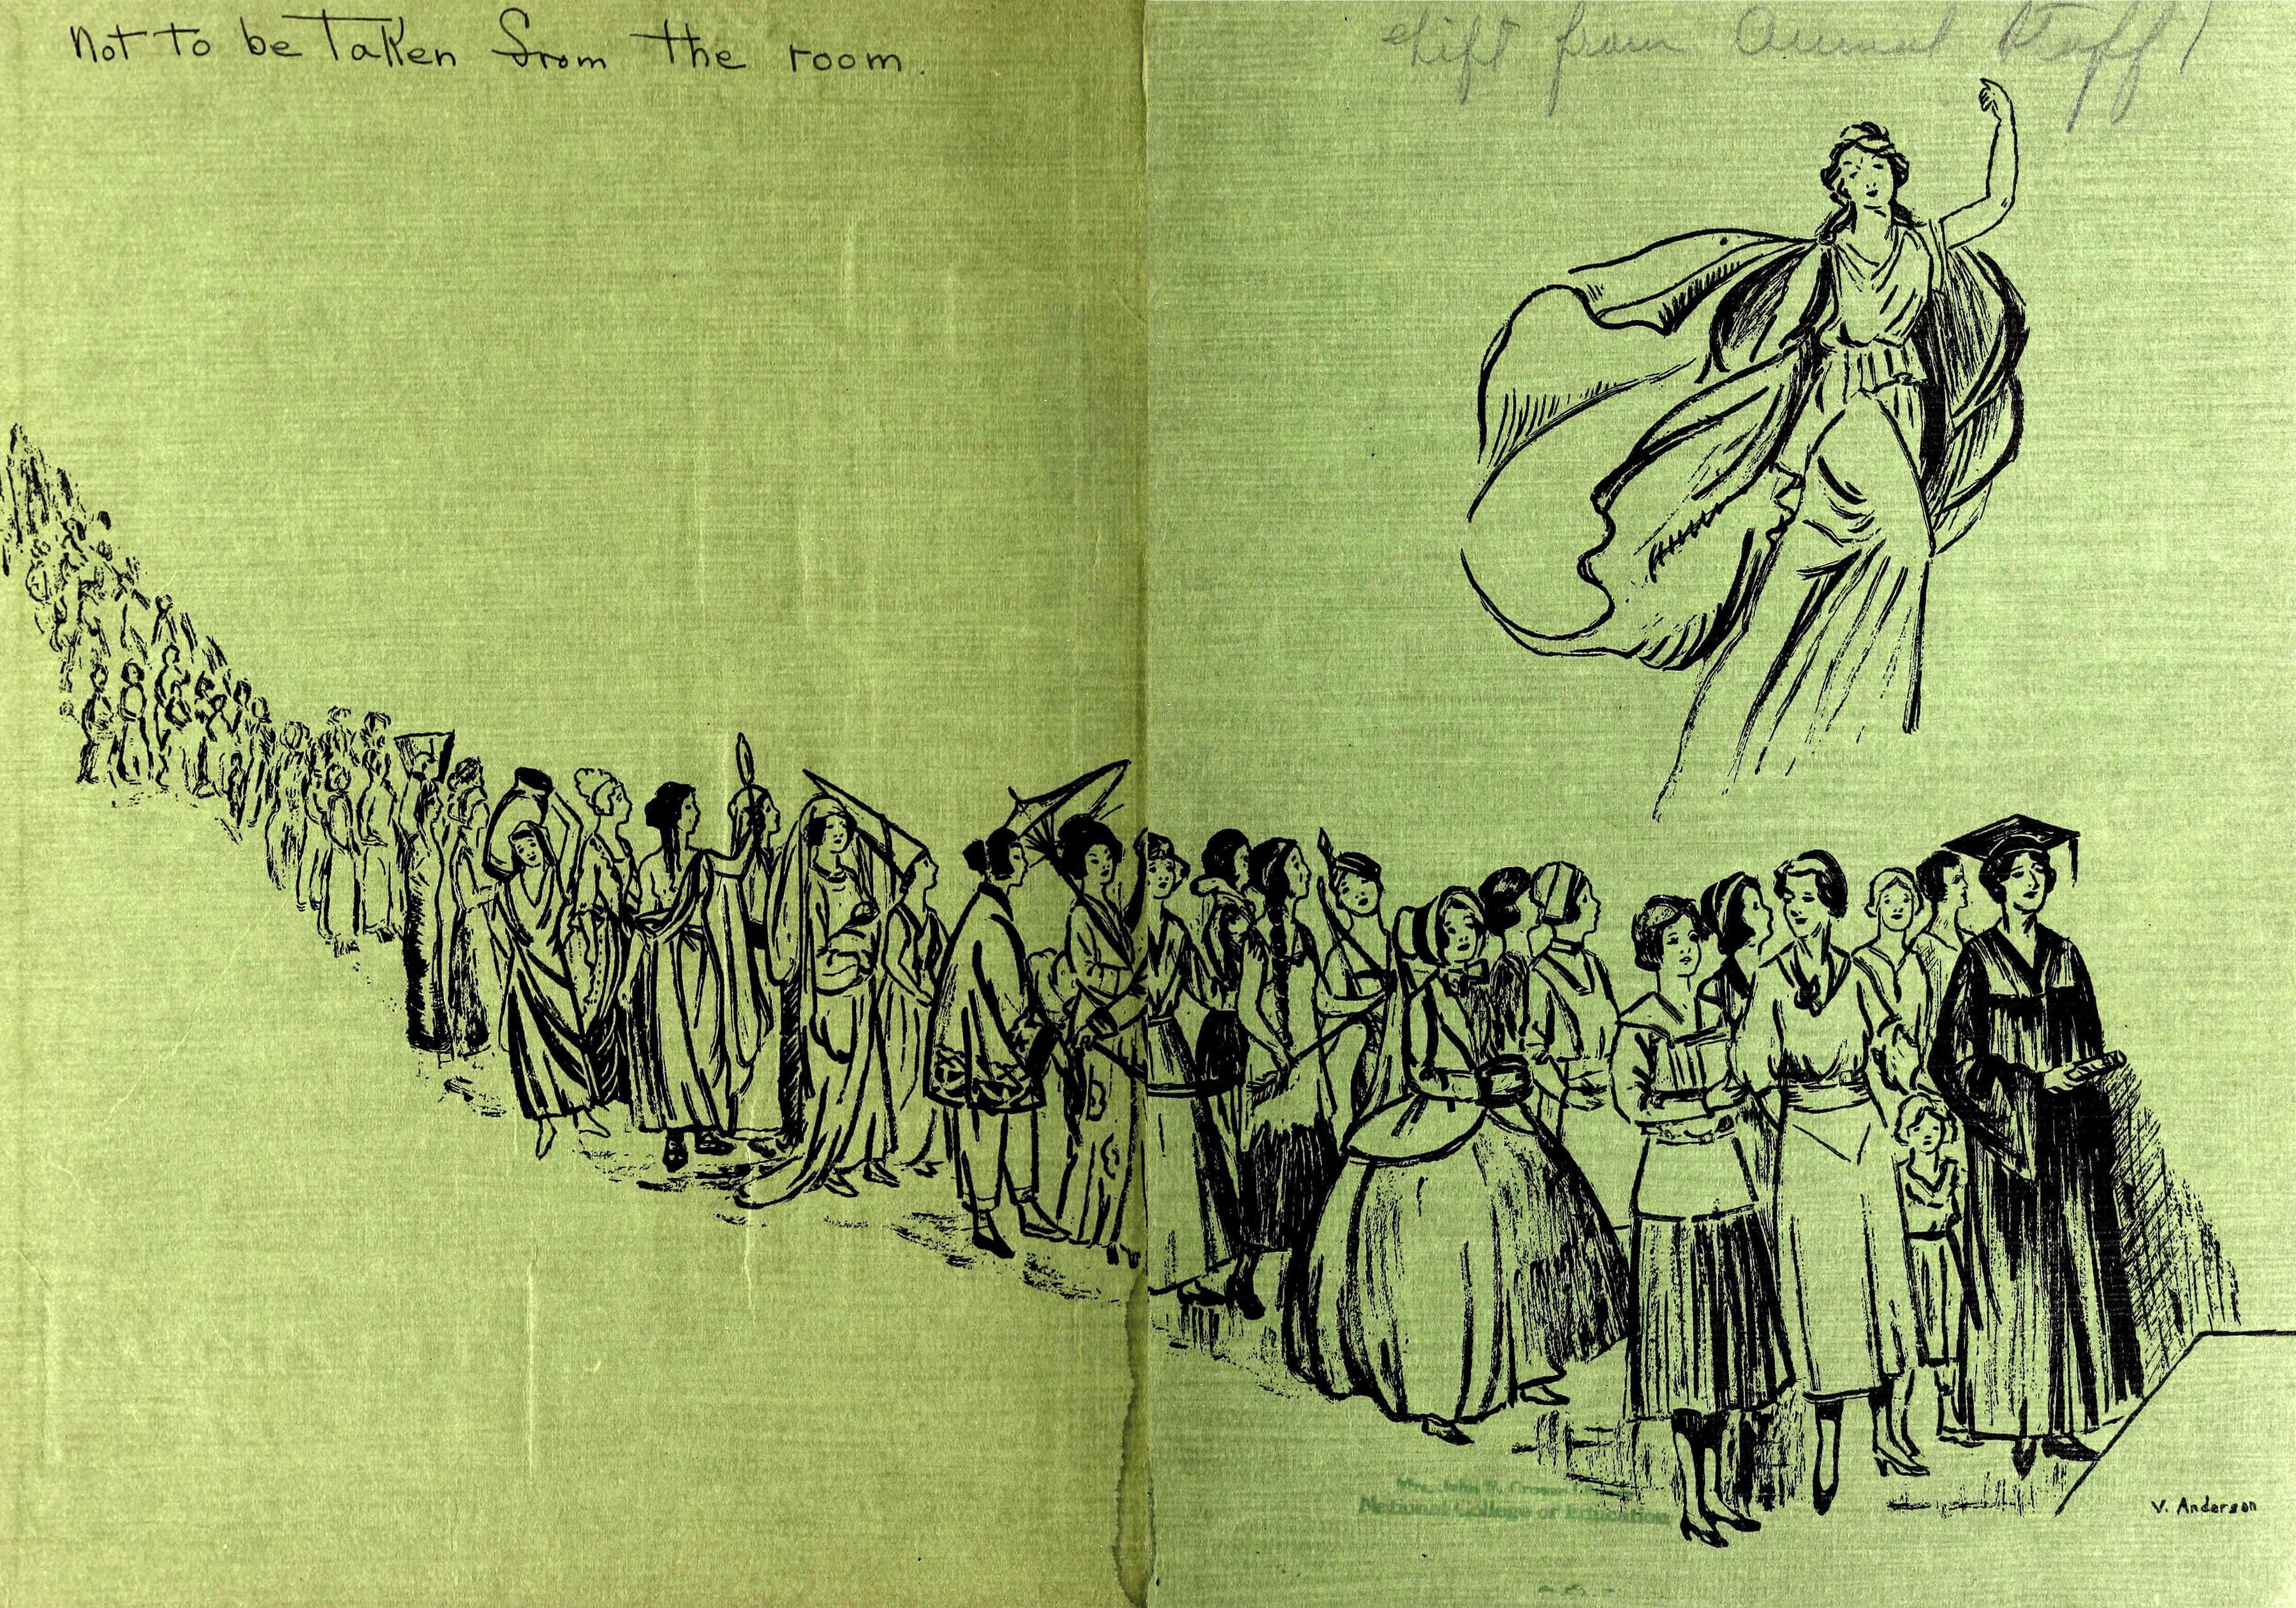 Not to be Taken from the room.
Gift from Annual Staff!
National College of Education
V. Anderson